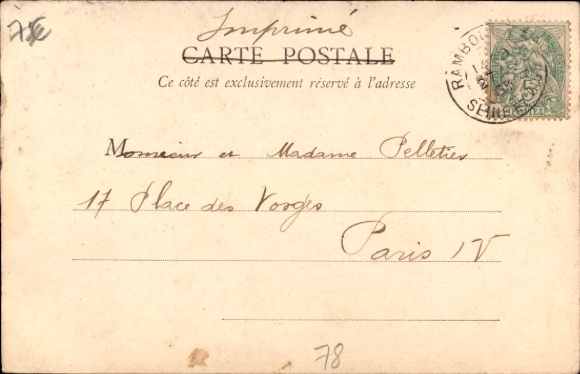 7 €
Imprimé
CARTE POSTALE
Ce côté est exclusivement réservé à l'adresse
RAMBOU
SEINE
Monsieur et Madame Pelletier
17 Place des Vosges
Paris IV
78